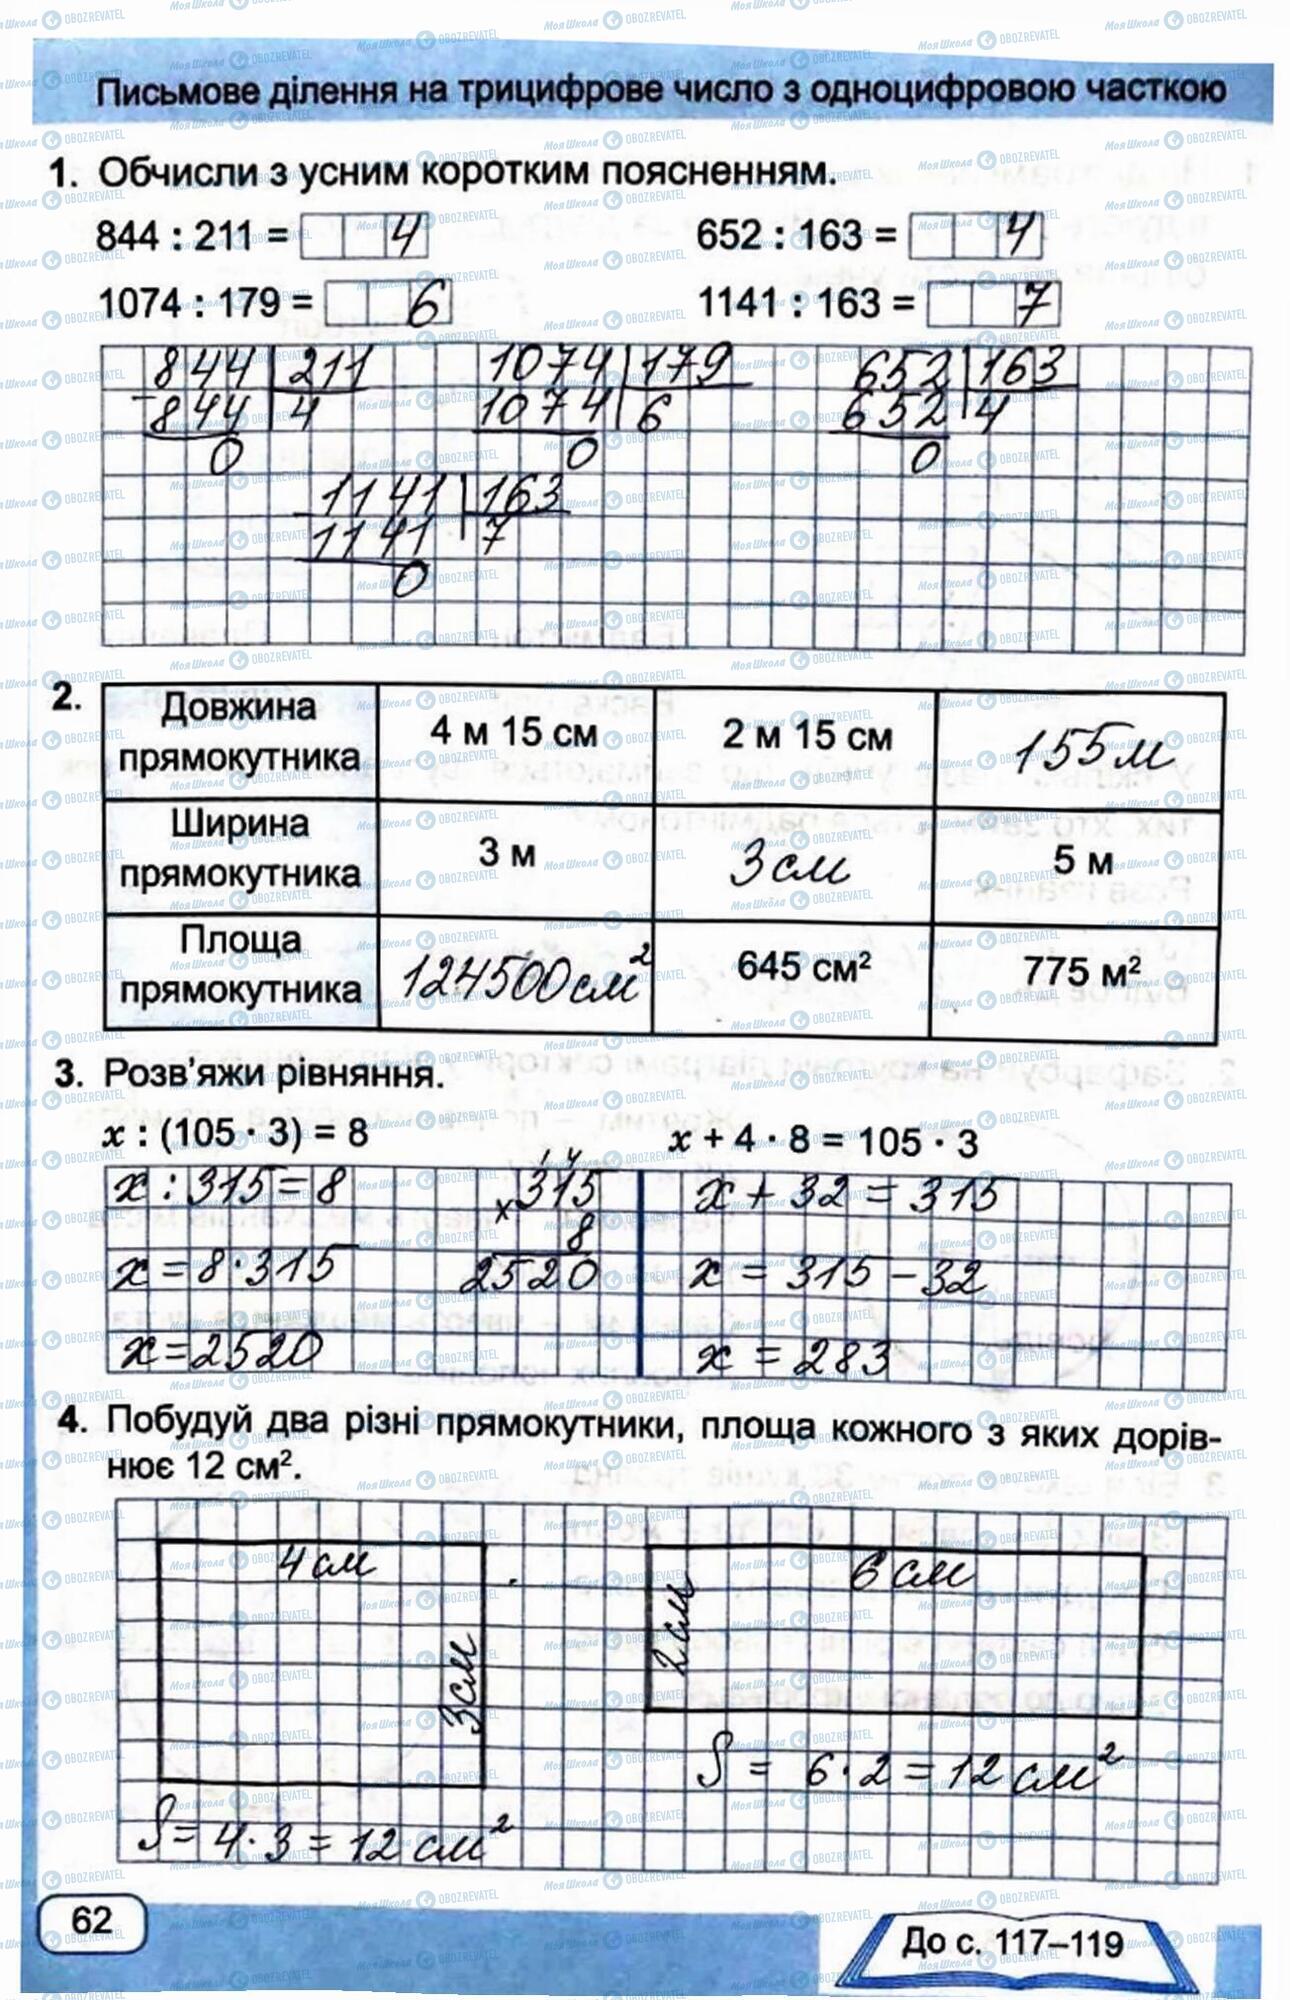 Письмове ділення на трицифрове число з одноцифровою часткою
1. Обчисли з усним коротким поясненням.
844 : 211 = 4 652 : 163 = 4
1074 : 179 = 6 1141 : 163 = 7
844 211 1074 179 652 163
- 844 4 1074 6 652 4
0 0 0
1141 163
1141 7
0
2. Довжина прямокутника 4 м 15 см 2 м 15 см 155 м
Ширина прямокутника 3 м 3 см 5 м
Площа прямокутника 124500 см² 645 см² 775 м²
3. Розв’яжи рівняння.
x : (105 · 3) = 8 x + 4 · 8 = 105 · 3
1 4
x : 315 = 8 315 x + 32 = 315
× 8
x = 8 · 315 2520 x = 315 – 32
x = 2520 x = 283
4. Побудуй два різні прямокутники, площа кожного з яких дорів-
нює 12 см².
4 см 6 см
2 см
3 см
S = 6 · 2 = 12 см²
S = 4 · 3 = 12 см²
62
До с. 117–119
МояШкола OBOZREVATEL